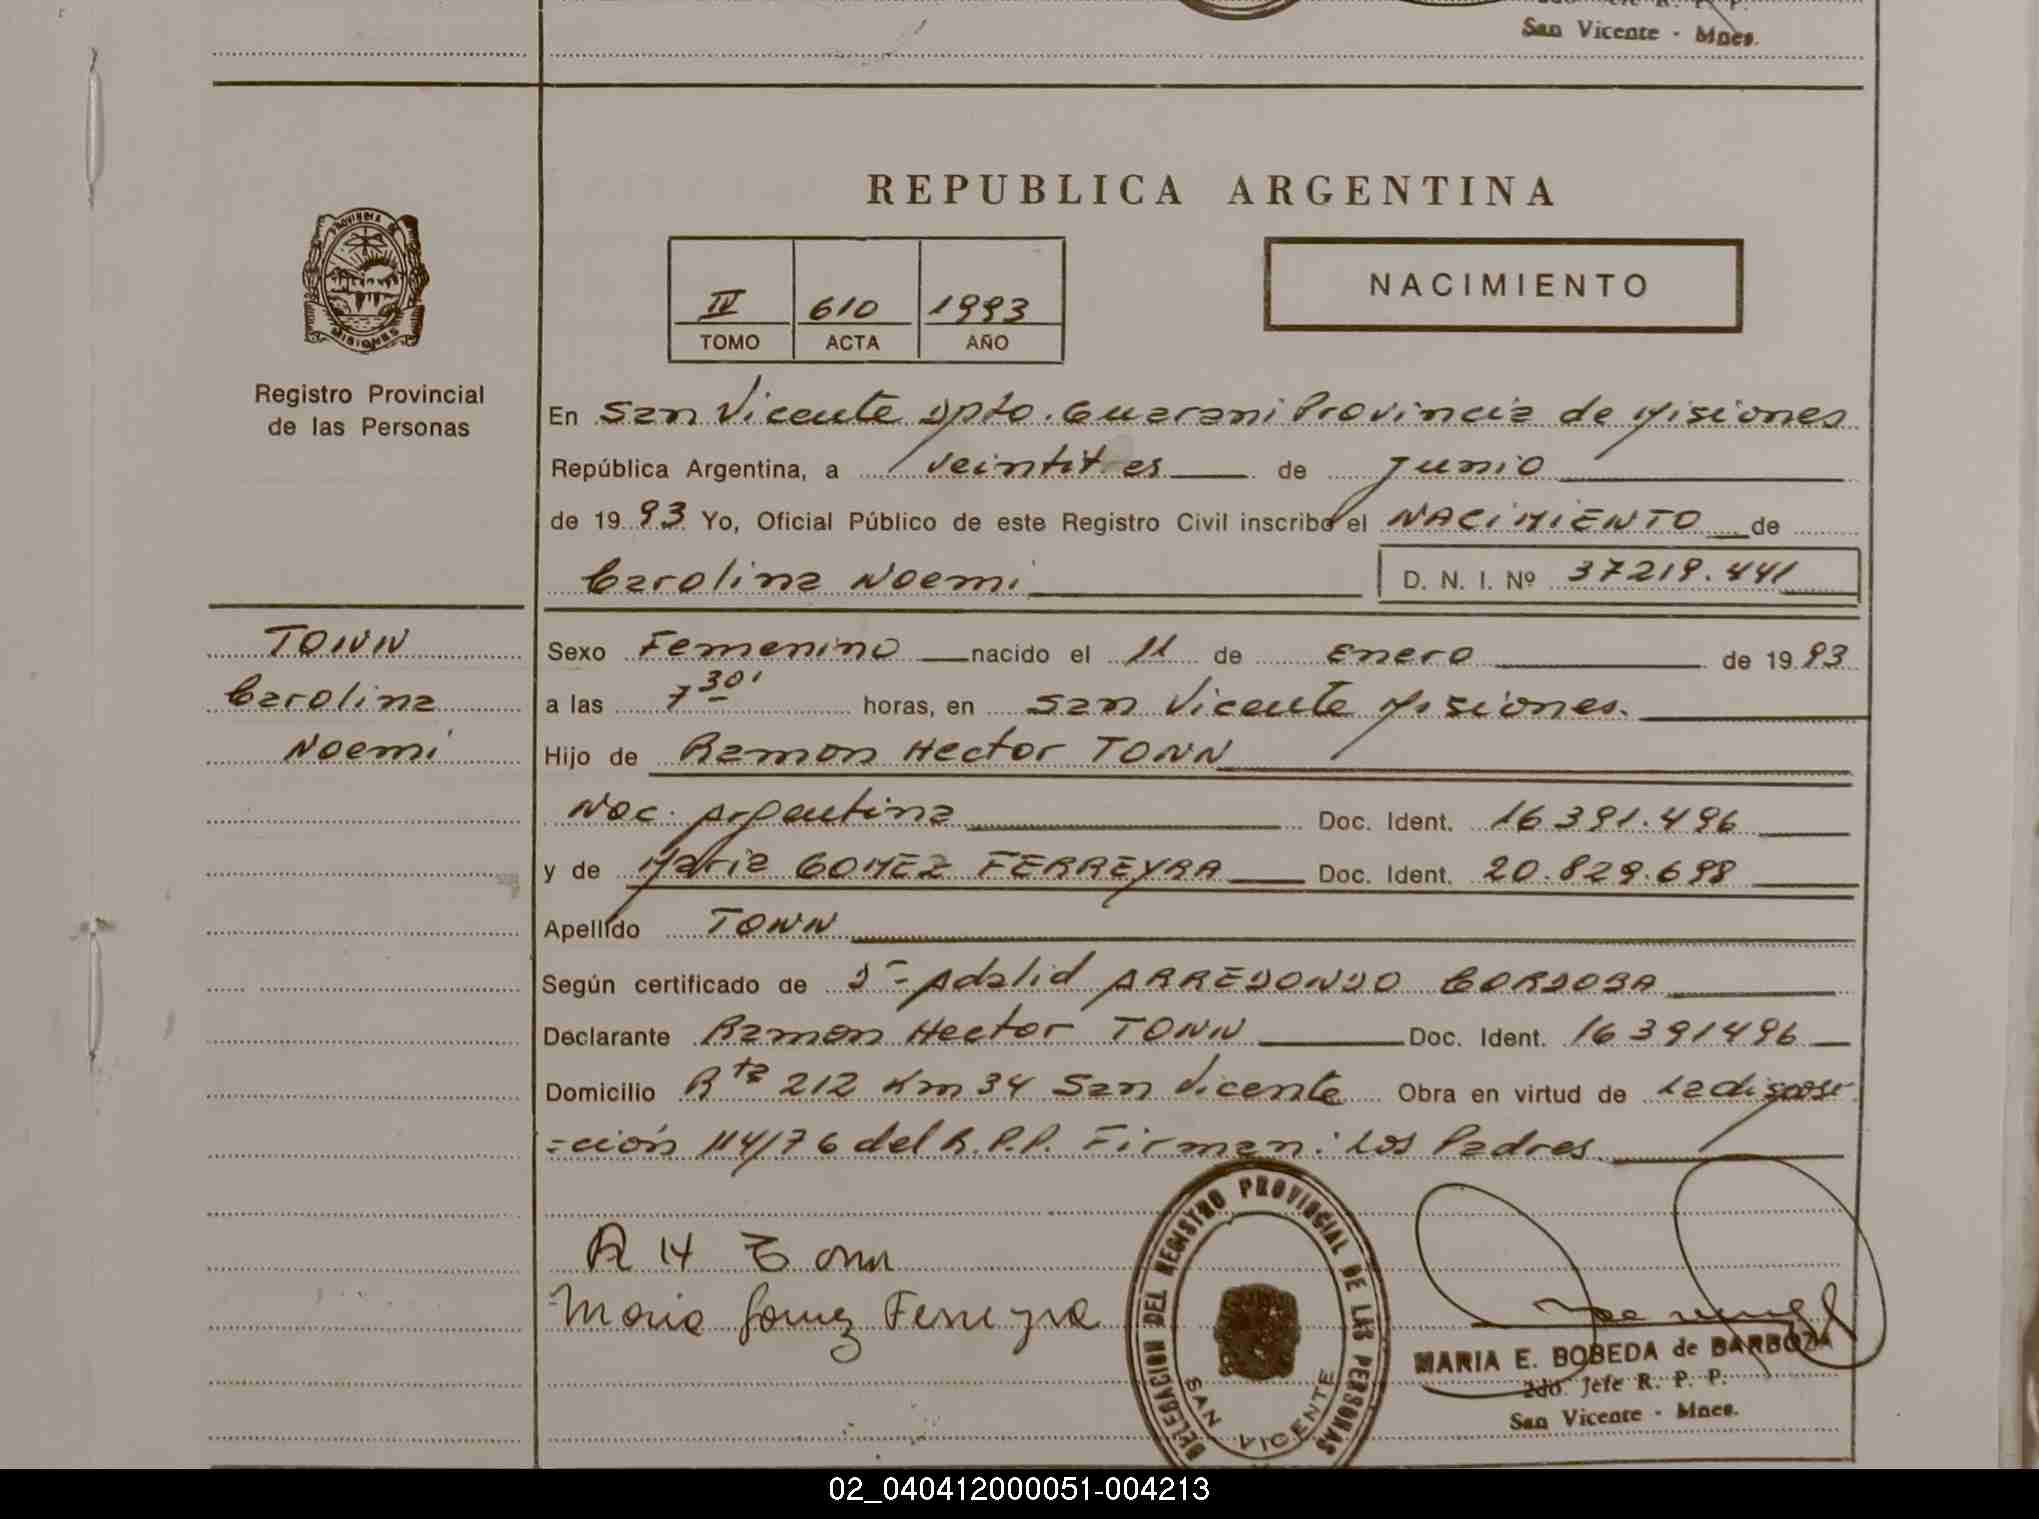 San Vicente - Mnes.
PROVINCIA DE
MISIONES
Registro Provincial
de las Personas
REPUBLICA ARGENTINA
IV 610 1993
TOMO ACTA AÑO
NACIMIENTO
En San Vicente Dpto. Guarani Provincia de Misiones
República Argentina, a veintitres de Junio
de 1993 Yo, Oficial Público de este Registro Civil inscribo el NACIMIENTO de
Carolina Noemi D. N. I. Nº 37219.441
TONN
Carolina
Noemi
Sexo Femenino nacido el 11 de Enero de 1993
a las 7 30' horas, en San Vicente Misiones.
Hijo de Ramon Hector TONN
Nac. Argentina Doc. Ident. 16391.496
y de Maria GOMEZ FERREYRA Doc. Ident. 20.829.698
Apellido TONN
Según certificado de Dr- Adalid ARREDONDO CORDOBA
Declarante Ramon Hector TONN Doc. Ident. 16391496
Domicilio Rta 212 Km 34 San Vicente Obra en virtud de La disposi
=ción 114/76 del R.P.P. Firman: Los Padres
R H Tonn
Maria Gomez Ferreyra
DELEGACION DEL REGISTRO PROVINCIAL DE LAS PERSONAS
SAN VICENTE
MARIA E. BOBEDA de BARBOZA
2do. Jefe R. P. P.
San Vicente - Mnes.
02_040412000051-004213